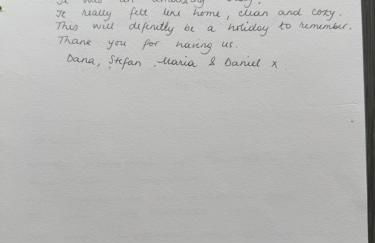 It was an amazing stay.
It really felt like home, clean and cozy.
This will definetly be a holiday to remember.
Thank you for having us.
Dana, Stefan, Maria & Daniel x